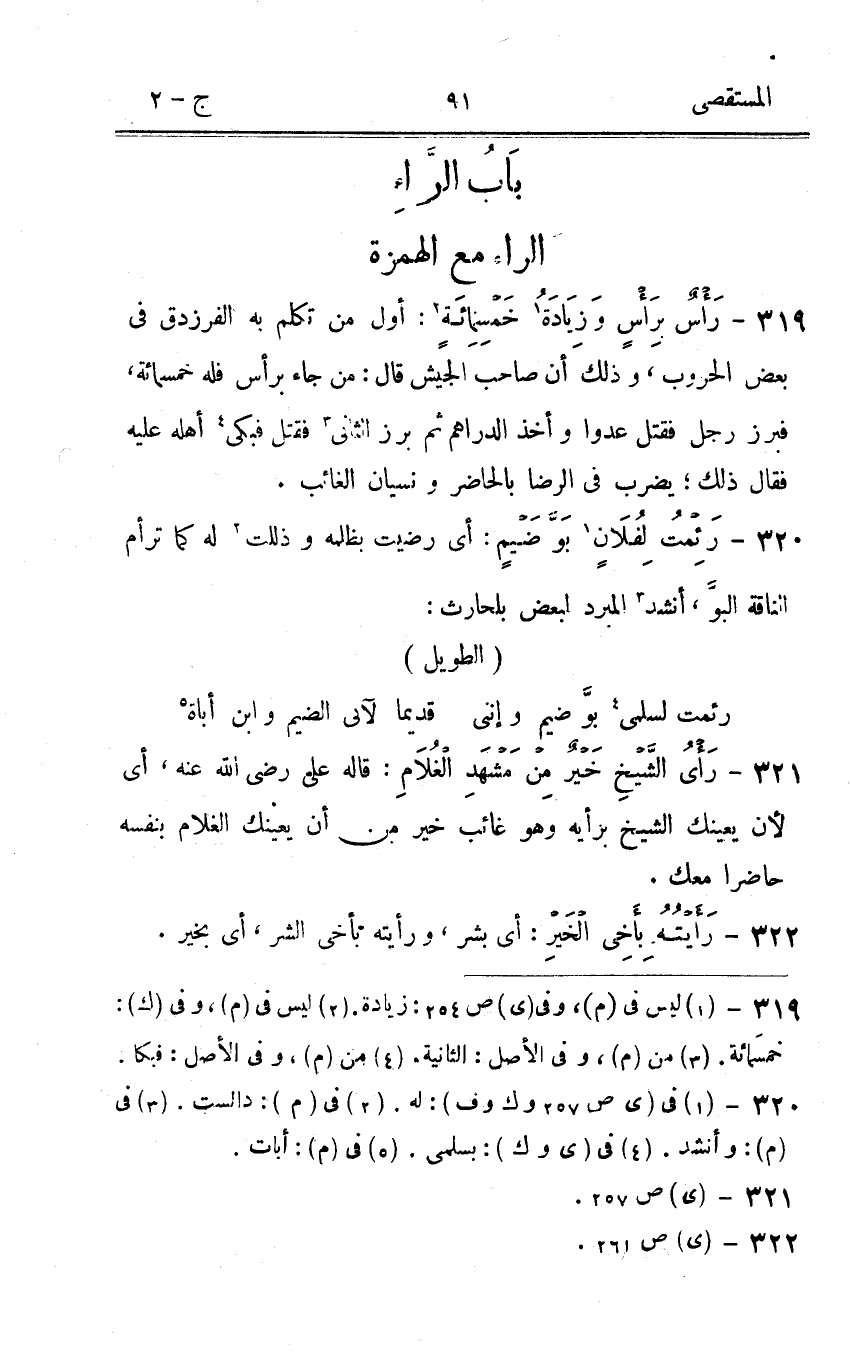 المستقصى ٩١ ج – ٢
بَابُ الرَّاءِ
الراء مع الهمزة
٣١٩ – رَأْسٌ بِرَأْسٍ وَزِيَادَةُ¹ خَمْسِمِائَةٍ² : أول من تكلم به الفرزدق فى
بعض الحروب ، و ذلك أن صاحب الجيش قال : من جاء برأس فله خمسمائة،
فبرز رجل فقتل عدوا و أخذ الدراهم ثم برز الثانى³ فقتل فبكى⁴ أهله عليه
فقال ذلك ؛ يضرب فى الرضا بالحاضر و نسيان الغائب .
٣٢٠ – رَئِمْتُ لِفُلَانٍ¹ بَوَّ ضَيْمٍ : أى رضيت بظلمه و ذللت² له كما ترأم
الناقة البوَّ ، أنشد³ المبرد لبعض بلحارث :
( الطويل )
رئمت لسلمى⁴ بوَّ ضيم و إننى قديما لآبى الضيم و ابن أباة⁵
٣٢١ – رَأْىُ الشَّيْخِ خَيْرٌ مِنْ مَشْهَدِ الْغُلَامِ : قاله على رضى الله عنه ، أى
لأن يعينك الشيخ برأيه وهو غائب خير من أن يعينك الغلام بنفسه
حاضرا معك .
٣٢٢ – رَأَيْتُهُ بِأَخِى الْخَيْرِ : أى بشر ، و رأيته بأخى الشر ، أى بخير .
٣١٩ – (١) ليس فى (م)، وفى(ى) ص ٢٥٤ : زيادة. (٢) ليس فى (م) ، و فى (ك) :
خمسَمائة. (٣) من (م) ، و فى الأصل : الثانية. (٤) من (م) ، و فى الأصل : فبكا .
٣٢٠ – (١) فى (ى ص ٢٥٧ و ك و ف) : له . (٢) فى ( م ) : دالست . (٣) فى
(م) : و أنشد . (٤) فى ( ى و ك ) : بسلمى . (٥) فى (م) : أبات .
٣٢١ – (ى) ص ٢٥٧ .
٣٢٢ – (ى) ص ٢٦١ .